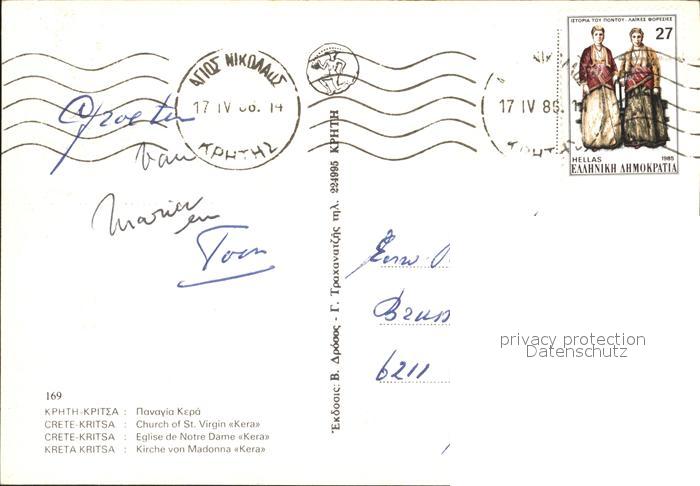 ΙΣΤΟΡΙΑ ΤΟΥ ΠΟΝΤΟΥ - ΛΑΪΚΕΣ ΦΟΡΕΣΙΕΣ
27
HELLAS 1985
ΕΛΛΗΝΙΚΗ ΔΗΜΟΚΡΑΤΙΑ
ΑΓΙΟΣ ΝΙΚΟΛΑΟΣ
17 IV 86. 14
ΚΡΗΤΗΣ
17 IV 86. 1
Groeten
van
Maria en
Toon
Brun
6211
privacy protection
Datenschutz
Ἐκδοσις: Β. Δρόσος - Γ. Τραχανατζῆς τηλ. 224995 ΚΡΗΤΗ
169
ΚΡΗΤΗ-ΚΡΙΤΣΑ : Παναγία Κερά
CRETE-KRITSA : Church of St. Virgin «Kera»
CRETE-KRITSA : Eglise de Notre Dame «Kera»
KRETA KRITSA : Kirche von Madonna «Kera»